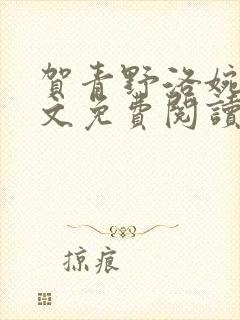 賀青野洛婉
文免費閱讀
掠痕